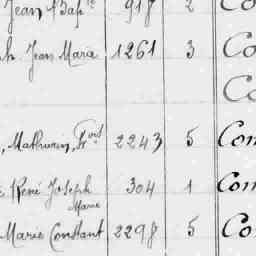 Jean Bapte 918 2 Co
h Jean Marie 1261 3 Co
Co
, Mathurin, 2243 5 Com
René Joseph 304 1 Com
Marie
Marie Constant 2298 5 Co